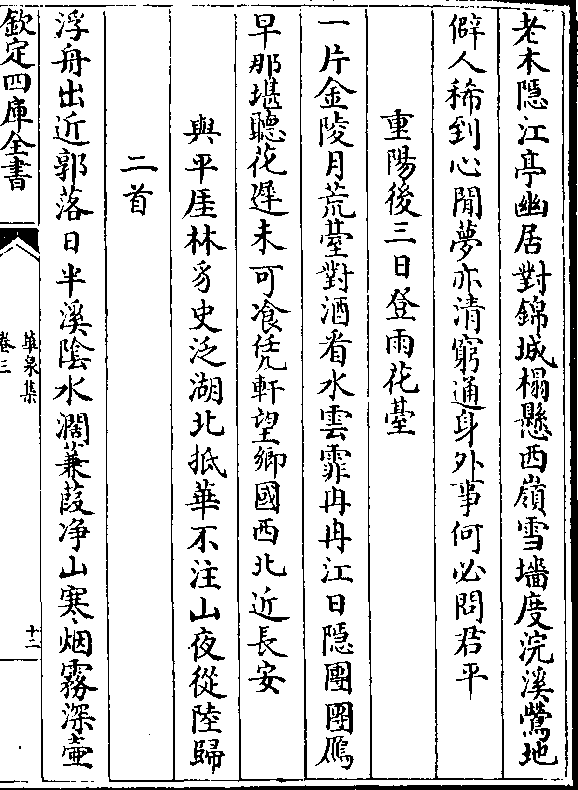 老木隱江亭幽居對錦城榻懸西嶺雪墻度浣溪鶯地
僻人稀到心閒夢亦清窮通身外事何必問君平
重陽後三日登雨花臺
一片金陵月荒臺對酒看水雲霏冉冉江日隱團團鴈
早那堪聽花遲未可飡凭軒望鄉國西北近長安
與平厓林豸史泛湖北抵華不注山夜從陸歸
二首
浮舟出近郭落日半溪陰水濶蒹葭净山寒烟霧深壷
欽定四庫全書
華泉集
卷三
十二